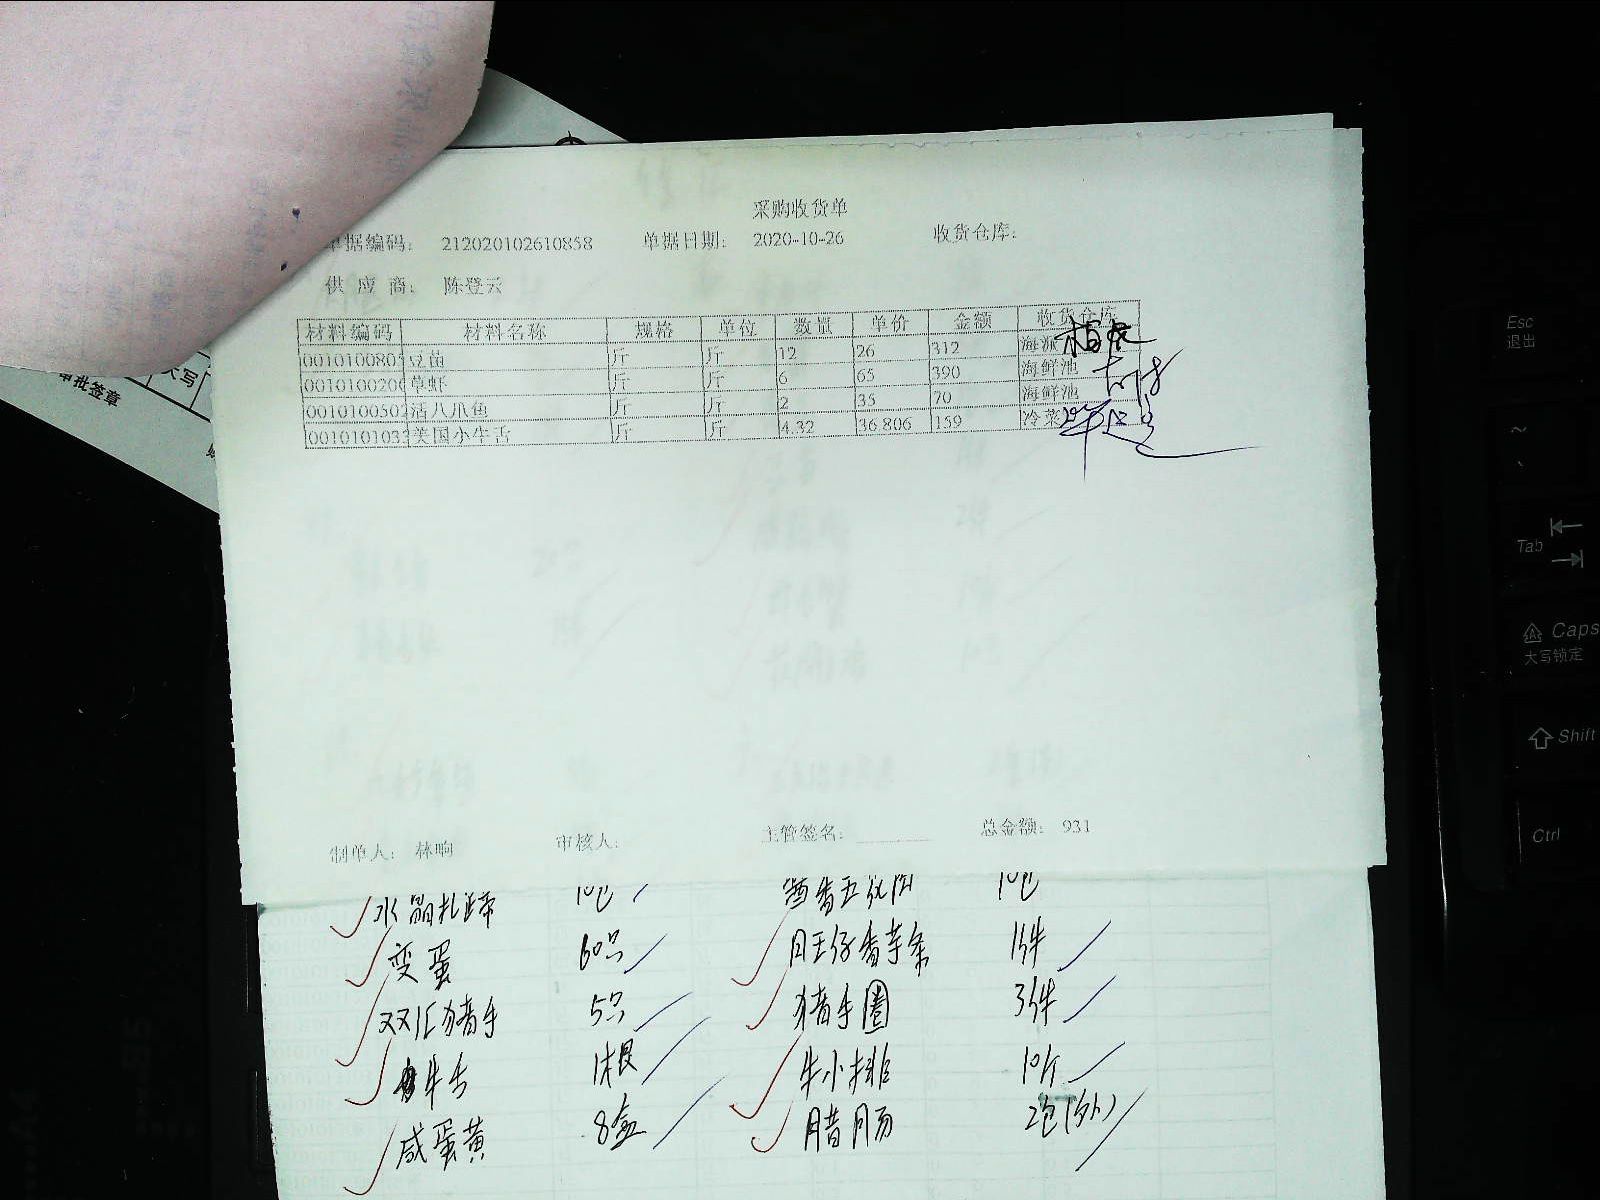 采购收货单
单据编码： 212020102610858 单据日期： 2020-10-26 收货仓库：
供 应 商： 陈登云
材料编码 材料名称 规格 单位 数量 单价 金额 收货仓库
0010100805 豆苗 斤 斤 12 26 312 海派
0010100206 草虾 斤 斤 6 65 390 海鲜池
0010100502 活八爪鱼 斤 斤 2 35 70 海鲜池
0010101033 美国小牛舌 斤 斤 4.32 36.806 159 冷菜
制单人： 林响 审核人： 主管签名： 总金额： 931
水晶扎蹄 10包 酱香五花肉 10包
变蛋 60只 旺仔香芋条 1件
双汇猪手 5只 猪手圈 3件
牛舌 1根 牛小排 10斤
咸蛋黄 8盒 腊肠 2包(外)
大写
审批签章
Esc
退出
Tab
Caps
大写锁定
Shift
Ctrl